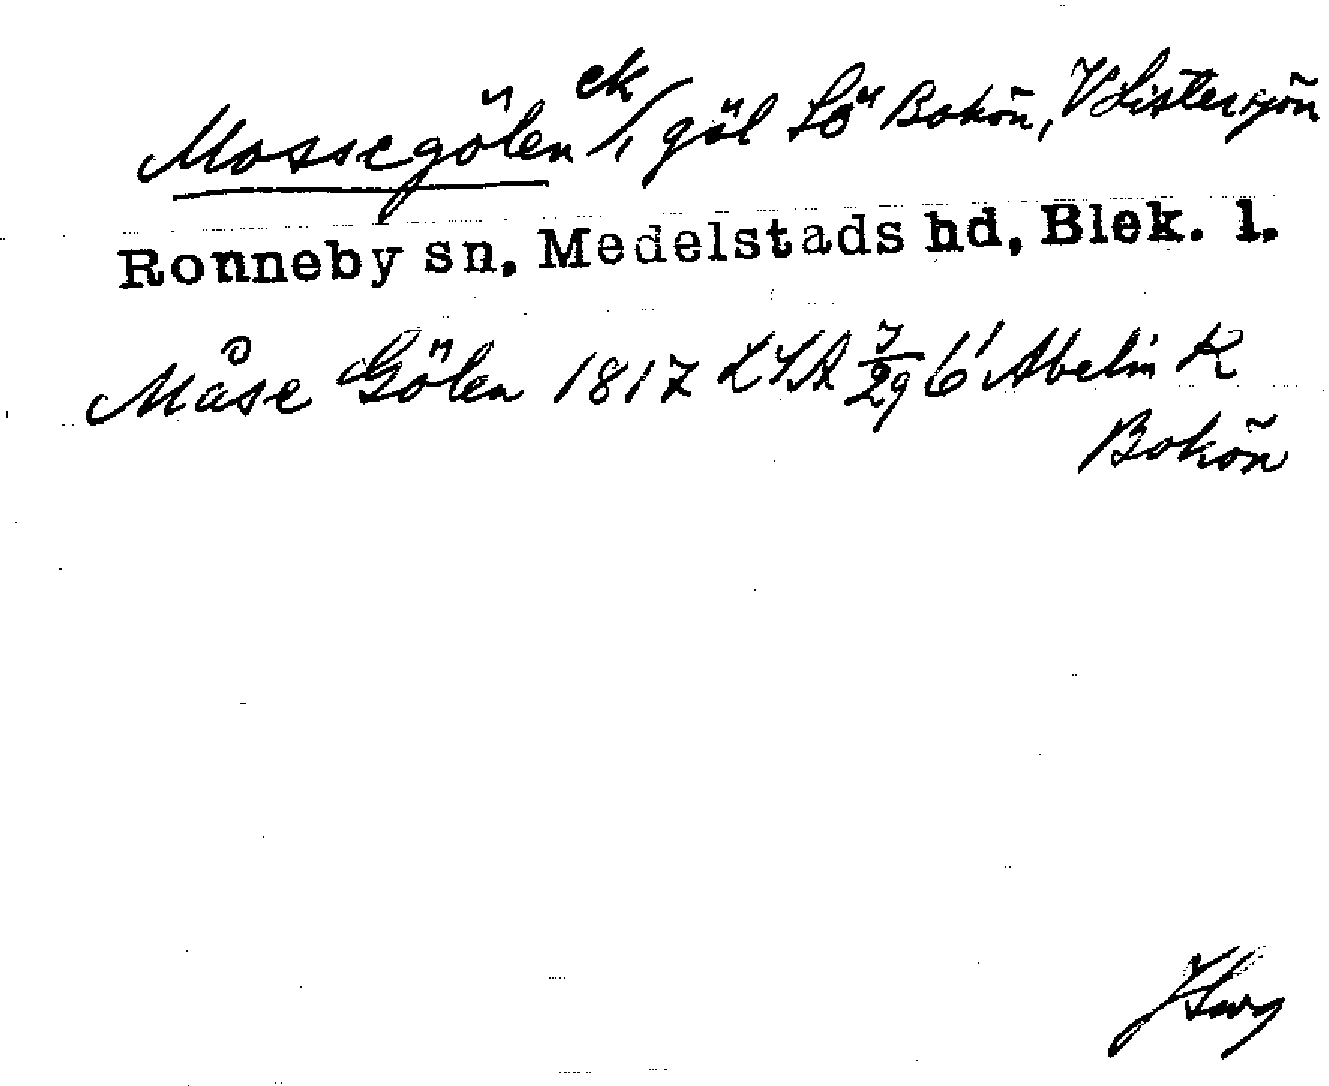 Mossegölen ek/, göl SÖ Bokön, V Listersjön
Ronneby sn. Medelstads hd, Blek. l.
Måse Gölen 1817 LSA 7/29 6' Abelin K
Bokön